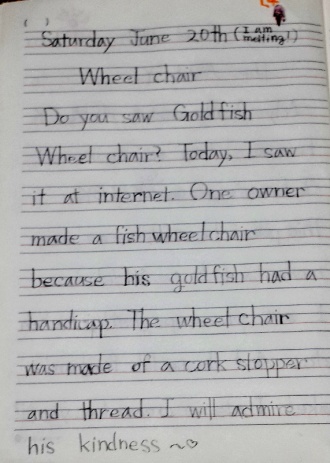 ( )
Saturday June 20th (I am melting!)
Wheel chair
Do you saw Goldfish
Wheel chair? Today, I saw
it at internet. One owner
made a fish wheelchair
because his goldfish had a
handicap. The wheel chair
was made of a cork stopper
and thread. I will admire
his kindness ~♡